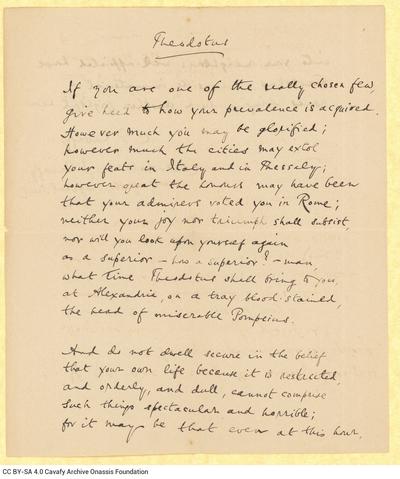 Theodotus
If you are one of the really chosen few,
give heed to how your prevalence is acquired.
However much you may be glorified;
however much the cities may extol
your feats in Italy and in Thessaly;
however great the honours may have been
that your admirers voted you in Rome;
neither your joy nor triumph shall subsist,
nor will you look upon yourself again
as a superior – how a superior? – man,
what time Theodotus shall bring to you,
at Alexandria, on a tray blood-stained,
the head of miserable Pompeius.
And do not dwell secure in the belief
that your own life because it is restricted,
and orderly, and dull, cannot comprise
such things spectacular and horrible;
for it may be that even at this hour,
CC BY-SA 4.0 Cavafy Archive Onassis Foundation